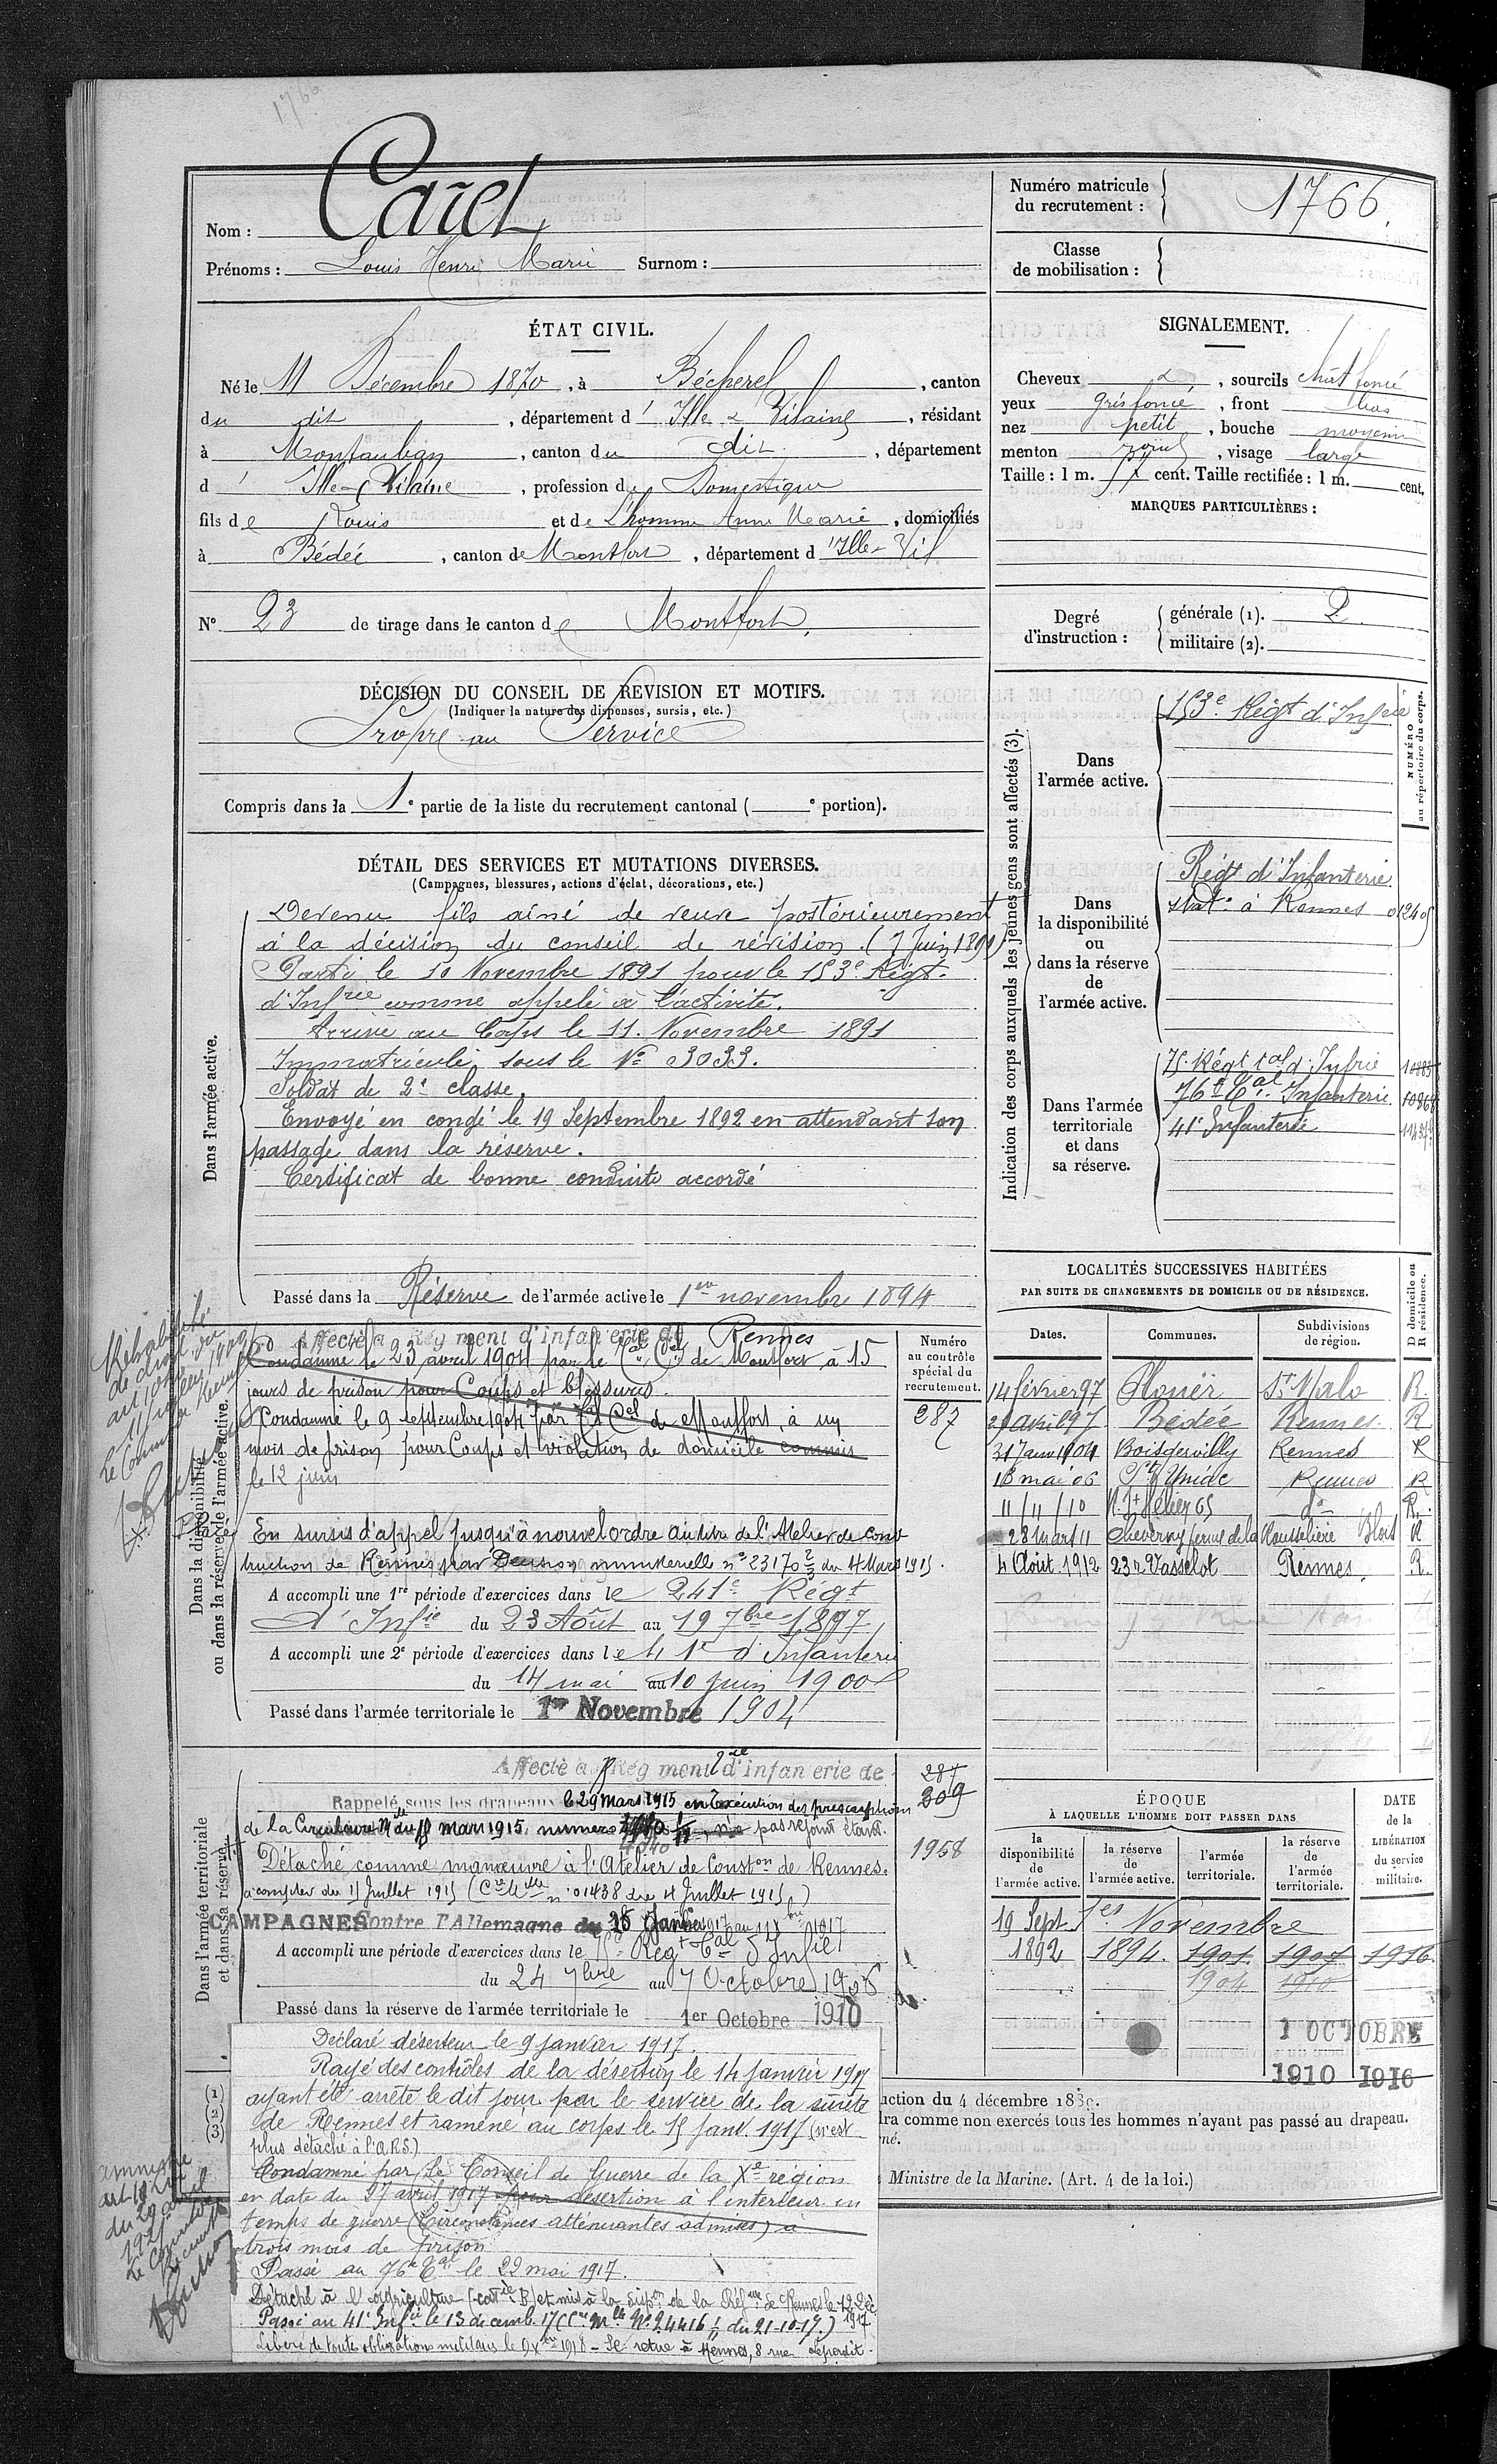 1766
Nom : Carel
Prénoms : Louis Henri Marie Surnom :
Numéro matricule du recrutement : 1766.
Classe de mobilisation :
ÉTAT CIVIL.
Né le 11 Décembre 1870, à Bécherel, canton
du dit, département d'Ille & Vilaine, résidant
à Montauban, canton du dit, département
d'Ille & Vilaine, profession de Domestique
fils de Louis et de Lhomme Anne Marie, domiciliés
à Bédée, canton de Montfort, département d'Ille-Vil
N° 23 de tirage dans le canton de Montfort.
SIGNALEMENT.
Cheveux &, sourcils chât foncé
yeux gris foncé, front bas
nez petit, bouche moyenne
menton rond, visage large
Taille : 1 m. 57 cent. Taille rectifiée : 1 m. cent.
MARQUES PARTICULIÈRES :
Degré d'instruction : générale (1). 2
militaire (2).
DÉCISION DU CONSEIL DE REVISION ET MOTIFS.
(Indiquer la nature des dispenses, sursis, etc.)
Propre au Service
Compris dans la 1e partie de la liste du recrutement cantonal ( e portion).
DÉTAIL DES SERVICES ET MUTATIONS DIVERSES.
(Campagnes, blessures, actions d'éclat, décorations, etc.)
Dans l'armée active.
Devenu fils aîné de veuve postérieurement
à la décision du conseil de révision. (7 Juin 1891)
Parti le 10 Novembre 1891 pour le 153e Régt.
d'Infrie comme appelé à l'activité.
Arrivé au Corps le 11. Novembre 1891
Immatriculé sous le N° 3033.
Soldat de 2e classe.
Envoyé en congé le 19 Septembre 1892 en attendant son
passage dans la réserve.
Certificat de bonne conduite accordé
Passé dans la Réserve de l'armée active le 1er novembre 1894
Indication des corps auxquels les jeunes gens sont affectés (3).
NUMÉRO au répertoire du corps.
Dans l'armée active.
153e Régt d'Infrie
Dans la disponibilité ou dans la réserve de l'armée active.
Régt d'Infanterie
statn à Rennes 01240
Dans l'armée territoriale et dans sa réserve.
75 Régt tal d'Infrie
76e tal Infanterie
41e Infanterie
Dans la disponibilité ou dans la réserve de l'armée active.
Affecté a Régiment d'infanterie de Rennes
Condamné le 23 avril 1904 par le Tal Cel de Montfort à 15
jours de prison pour Coups et blessures.
Condamné le 9 septembre 1904 par Tal Cel de Montfort, à un
mois de prison pour Coups et violation de domicile commis
le 12 juin
En sursis d'appel jusqu'à nouvel ordre au titre de l'Atelier de cons
truction de Rennes par Décision ministérielle n° 23170 2/3 du 4 Mars 1915.
A accompli une 1re période d'exercices dans le 241e Régt
d'Infie du 23 Août au 19 7bre 1897
A accompli une 2e période d'exercices dans le 41e d'Infanterie
du 14 mai au 10 juin 1900
Passé dans l'armée territoriale le 1er Novembre 1904
Numéro au contrôle spécial du recrutement.
287
Réhabilité
de droit
LOCALITÉS SUCCESSIVES HABITÉES
PAR SUITE DE CHANGEMENTS DE DOMICILE OU DE RÉSIDENCE.
Dates. Communes. Subdivisions de région. D domicile ou R résidence.
14 février 97 Plouër St Malo R.
29 avril 97 Bédée Rennes R
31 Janv 1904 Boisgervilly Rennes R
18 mai 06 St Uniac Rennes R
11/11/10 R. St Hélier 65 do R.
28 mars 11 Cheverny ferme de la Rousselière Blois R
4 Août 1912 23 r Vasselot Rennes. R.
Dans l'armée territoriale et dans sa réserve.
Affecté au Régiment d'infanterie de
Rappelé sous les drapeaux le 29 mars 1915 en exécution des prescriptions
de la Circulaire Mlle du 18 mars 1915, numéro, n'a pas rejoint étant.
Détaché comme manœuvre à l'Atelier de Conston de Rennes.
à compter du 11 Juillet 1915 (Cre Mlle n° 01438 du 4 Juillet 1915)
CAMPAGNES Contre l'Allemagne du 15 Janvier 1917 au
A accompli une période d'exercices dans le 75e Régt tal d'Infie
du 24 7bre au 7 Octobre 1906
Passé dans la réserve de l'armée territoriale le 1er Octobre 1910
287
309
1958
ÉPOQUE
À LAQUELLE L'HOMME DOIT PASSER DANS
la disponibilité de l'armée active. la réserve de l'armée active. l'armée territoriale. la réserve de l'armée territoriale. DATE de la LIBÉRATION du service militaire.
19 Sept. 1er Novembre
1892 1894. 1901 1907 1916
1904 1910
1 OCTOBRE
1910 1916
(1)
(2)
(3)
uction du 4 décembre 1889.
dra comme non exercés tous les hommes n'ayant pas passé au drapeau.
né.
Ministre de la Marine. (Art. 4 de la loi.)
Déclaré déserteur le 9 janvier 1917.
Rayé des contrôles de la désertion le 14 janvier 1917
ayant été arrêté le dit jour par le service de la sûreté
de Rennes et ramené au corps le 15 janv. 1917 (n'est
plus détaché à l'A.R.S.)
Condamné par le Conseil de Guerre de la Xe région
en date du 27 avril 1917 pour désertion à l'intérieur en
temps de guerre (Circonstances atténuantes admises) à
trois mois de prison
Passé au 76e tal le 22 mai 1917.
Détaché à l'agriculture (catie B) et mis à la dispon de la de Rennes le
Passé au 41e Infie le 13 décemb. 17 (Cre Mlle N° 24416 du 21-10-17.)
Libéré de toutes obligations militaires le 1918 – Se retire à Rennes, 8 rue Leperdit.
amnistié
du 29 avril
1921